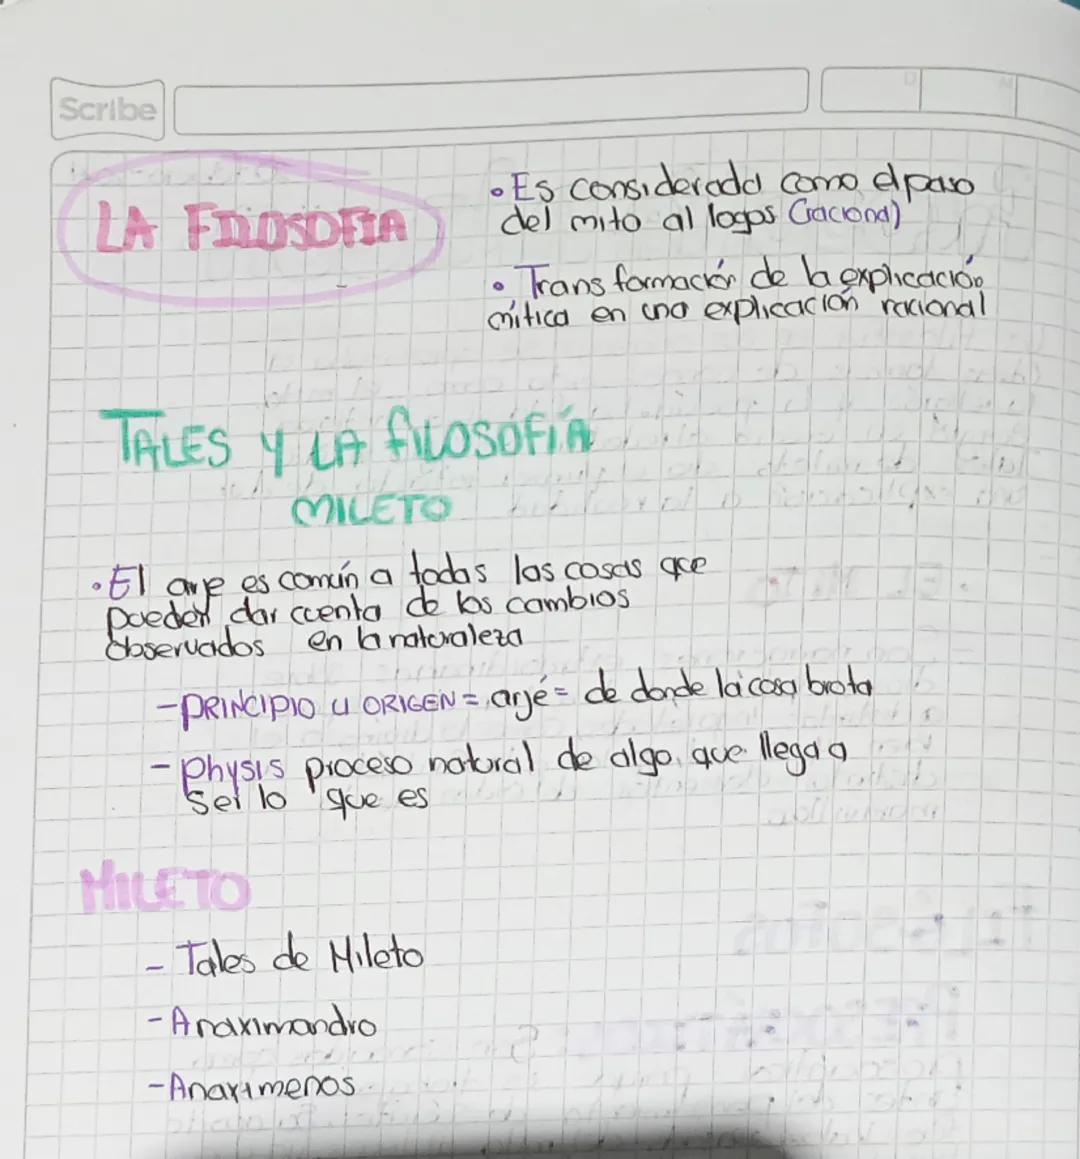 Scribe
LA FILOSOFIA
• Es considerada como el paso
del mito al logos (racional)
• Transformación de la explicación
mítica en una explicación racional
TALES Y LA FILOSOFÍA
MILETO
• El arje es común a todas las cosas que
pueden dar cuenta de los cambios
observados en la naturaleza
- PRINCIPIO U ORIGEN = arjé = de donde la cosa brota
- Physis proceso natural de algo que llega a
ser lo que es
MILETO
- Tales de Mileto
- Anaximandro
- Anaximenos